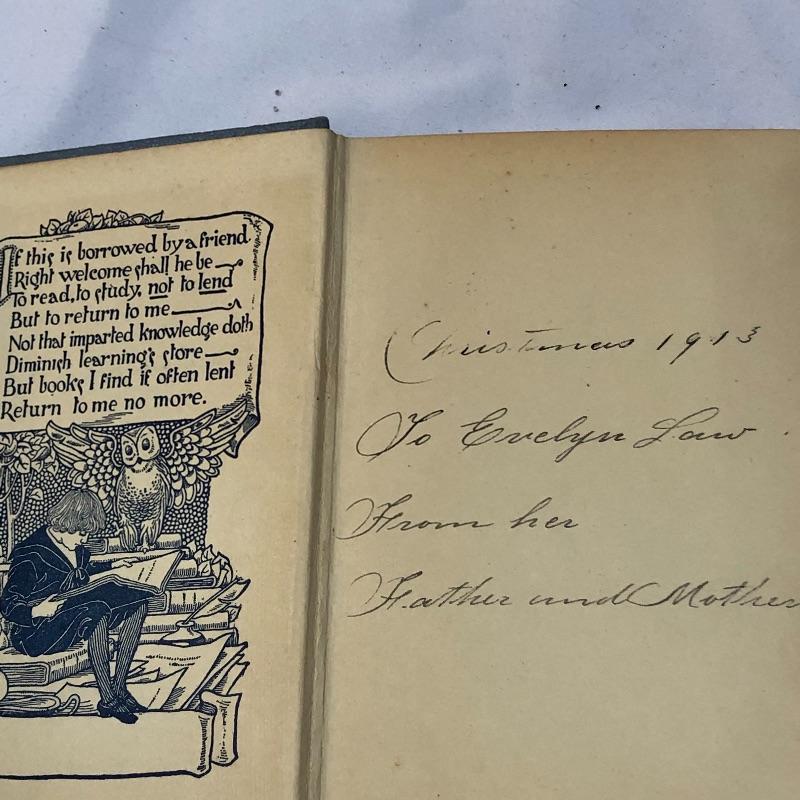 If this is borrowed by a friend
Right welcome shall he be
To read, to study, not to lend
But to return to me
Not that imparted knowledge doth
Diminish learning's store
But books I find if often lent
Return to me no more.
Christmas 1913
To Evelyn Law.
From her
Father and Mother